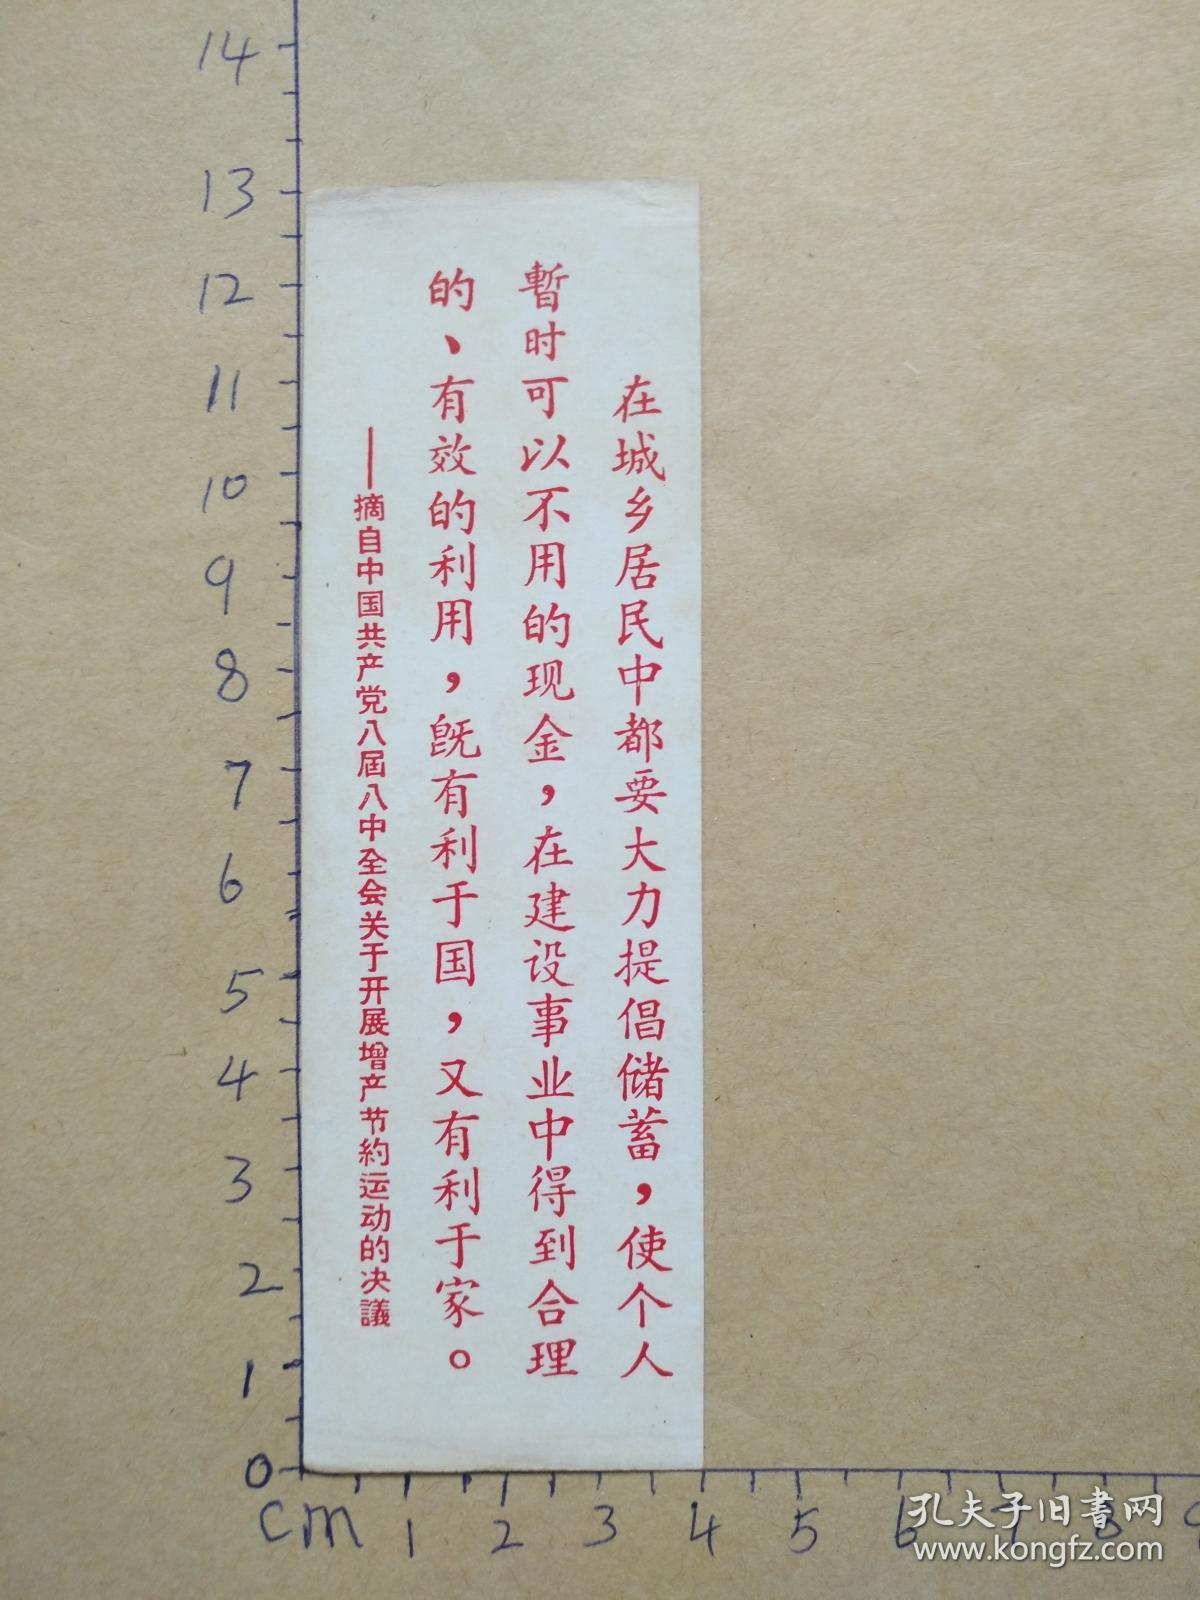 在城乡居民中都要大力提倡储蓄，使个人
暫时可以不用的现金，在建设事业中得到合理
的、有效的利用，既有利于国，又有利于家。
——摘自中国共产党八届八中全会关于开展增产节約运动的决議
14
13
12
11
10
9
8
7
6
5
4
3
2
1
0
cm 1 2 3 4 5 6 7 8 9
孔夫子旧書网
www.kongfz.com